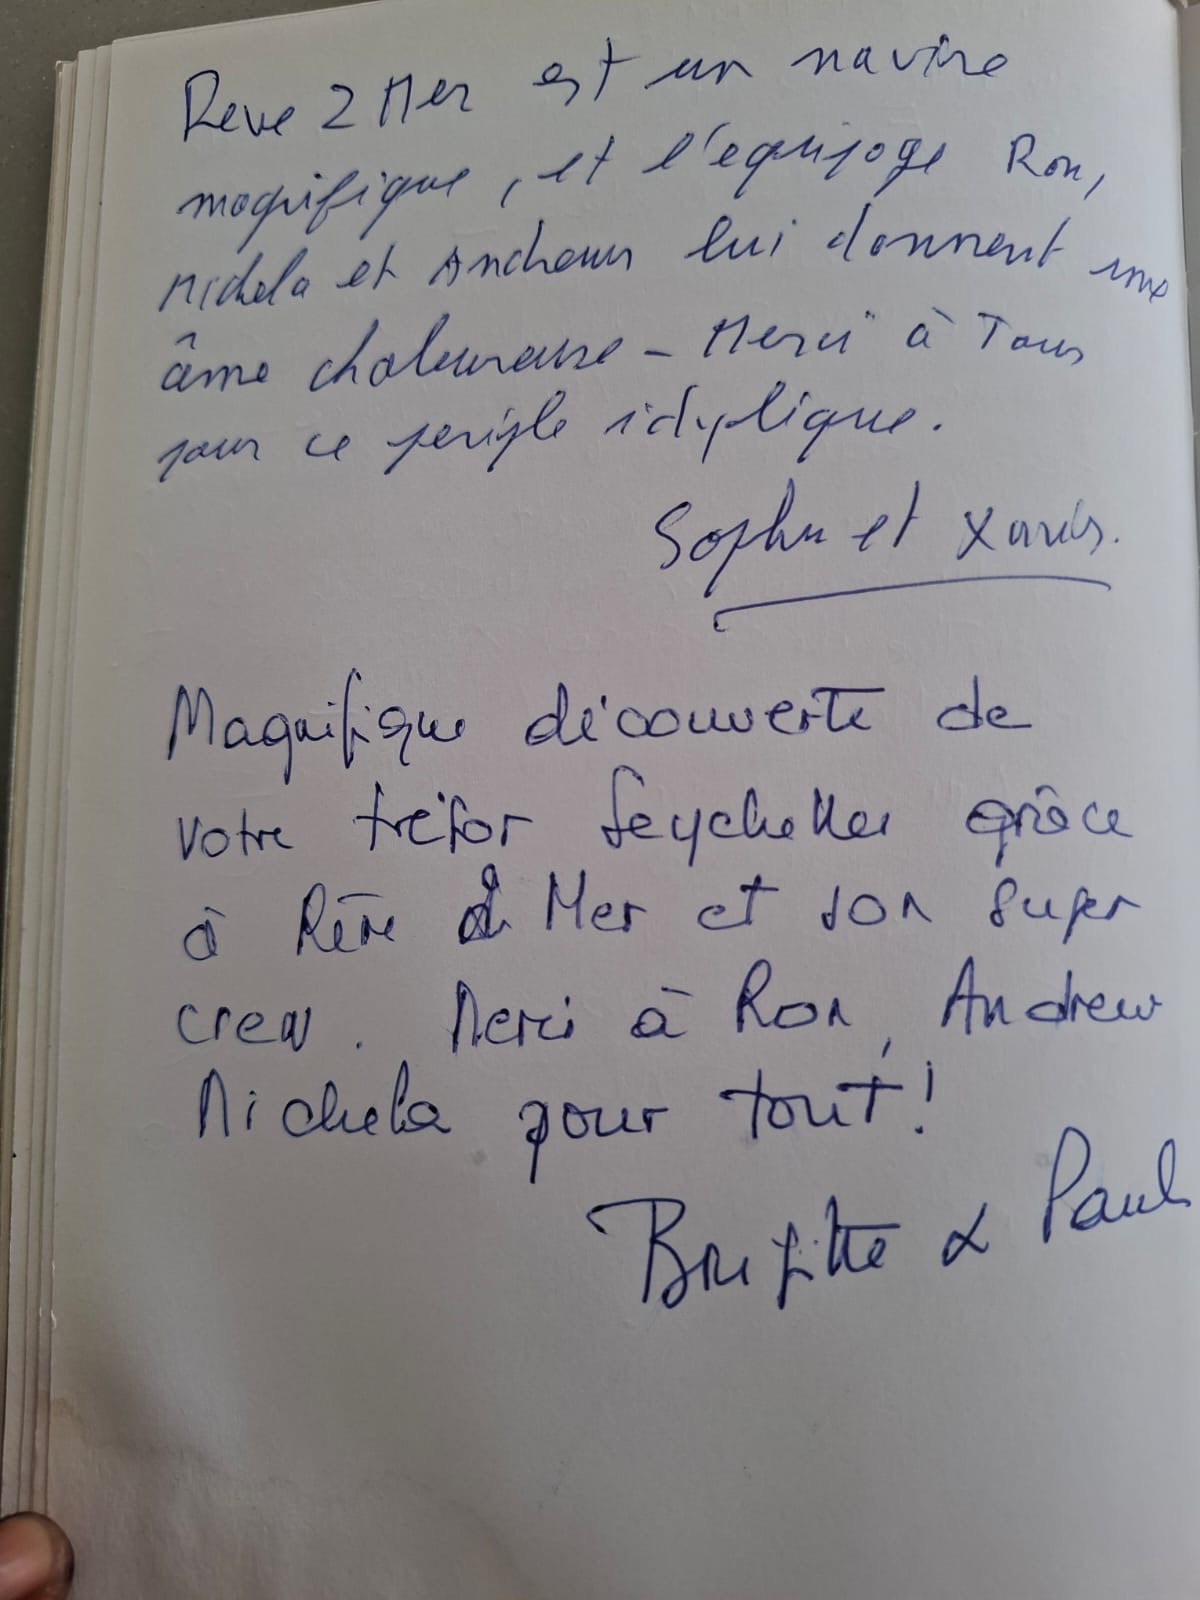 Reve 2 Mer est un navire
magnifique, et l'equipage Ron,
Michela et Andrew lui donnent une
âme chaleureuse - Merci à Tous
pour ce periple idyllique.
Sophie et Xavier.
Magnifique découverte de
votre trésor Seychelles grâce
à Rêve 2 Mer et son super
crew. Merci à Ron, Andrew
Michela pour tout!
Brigitte & Paul